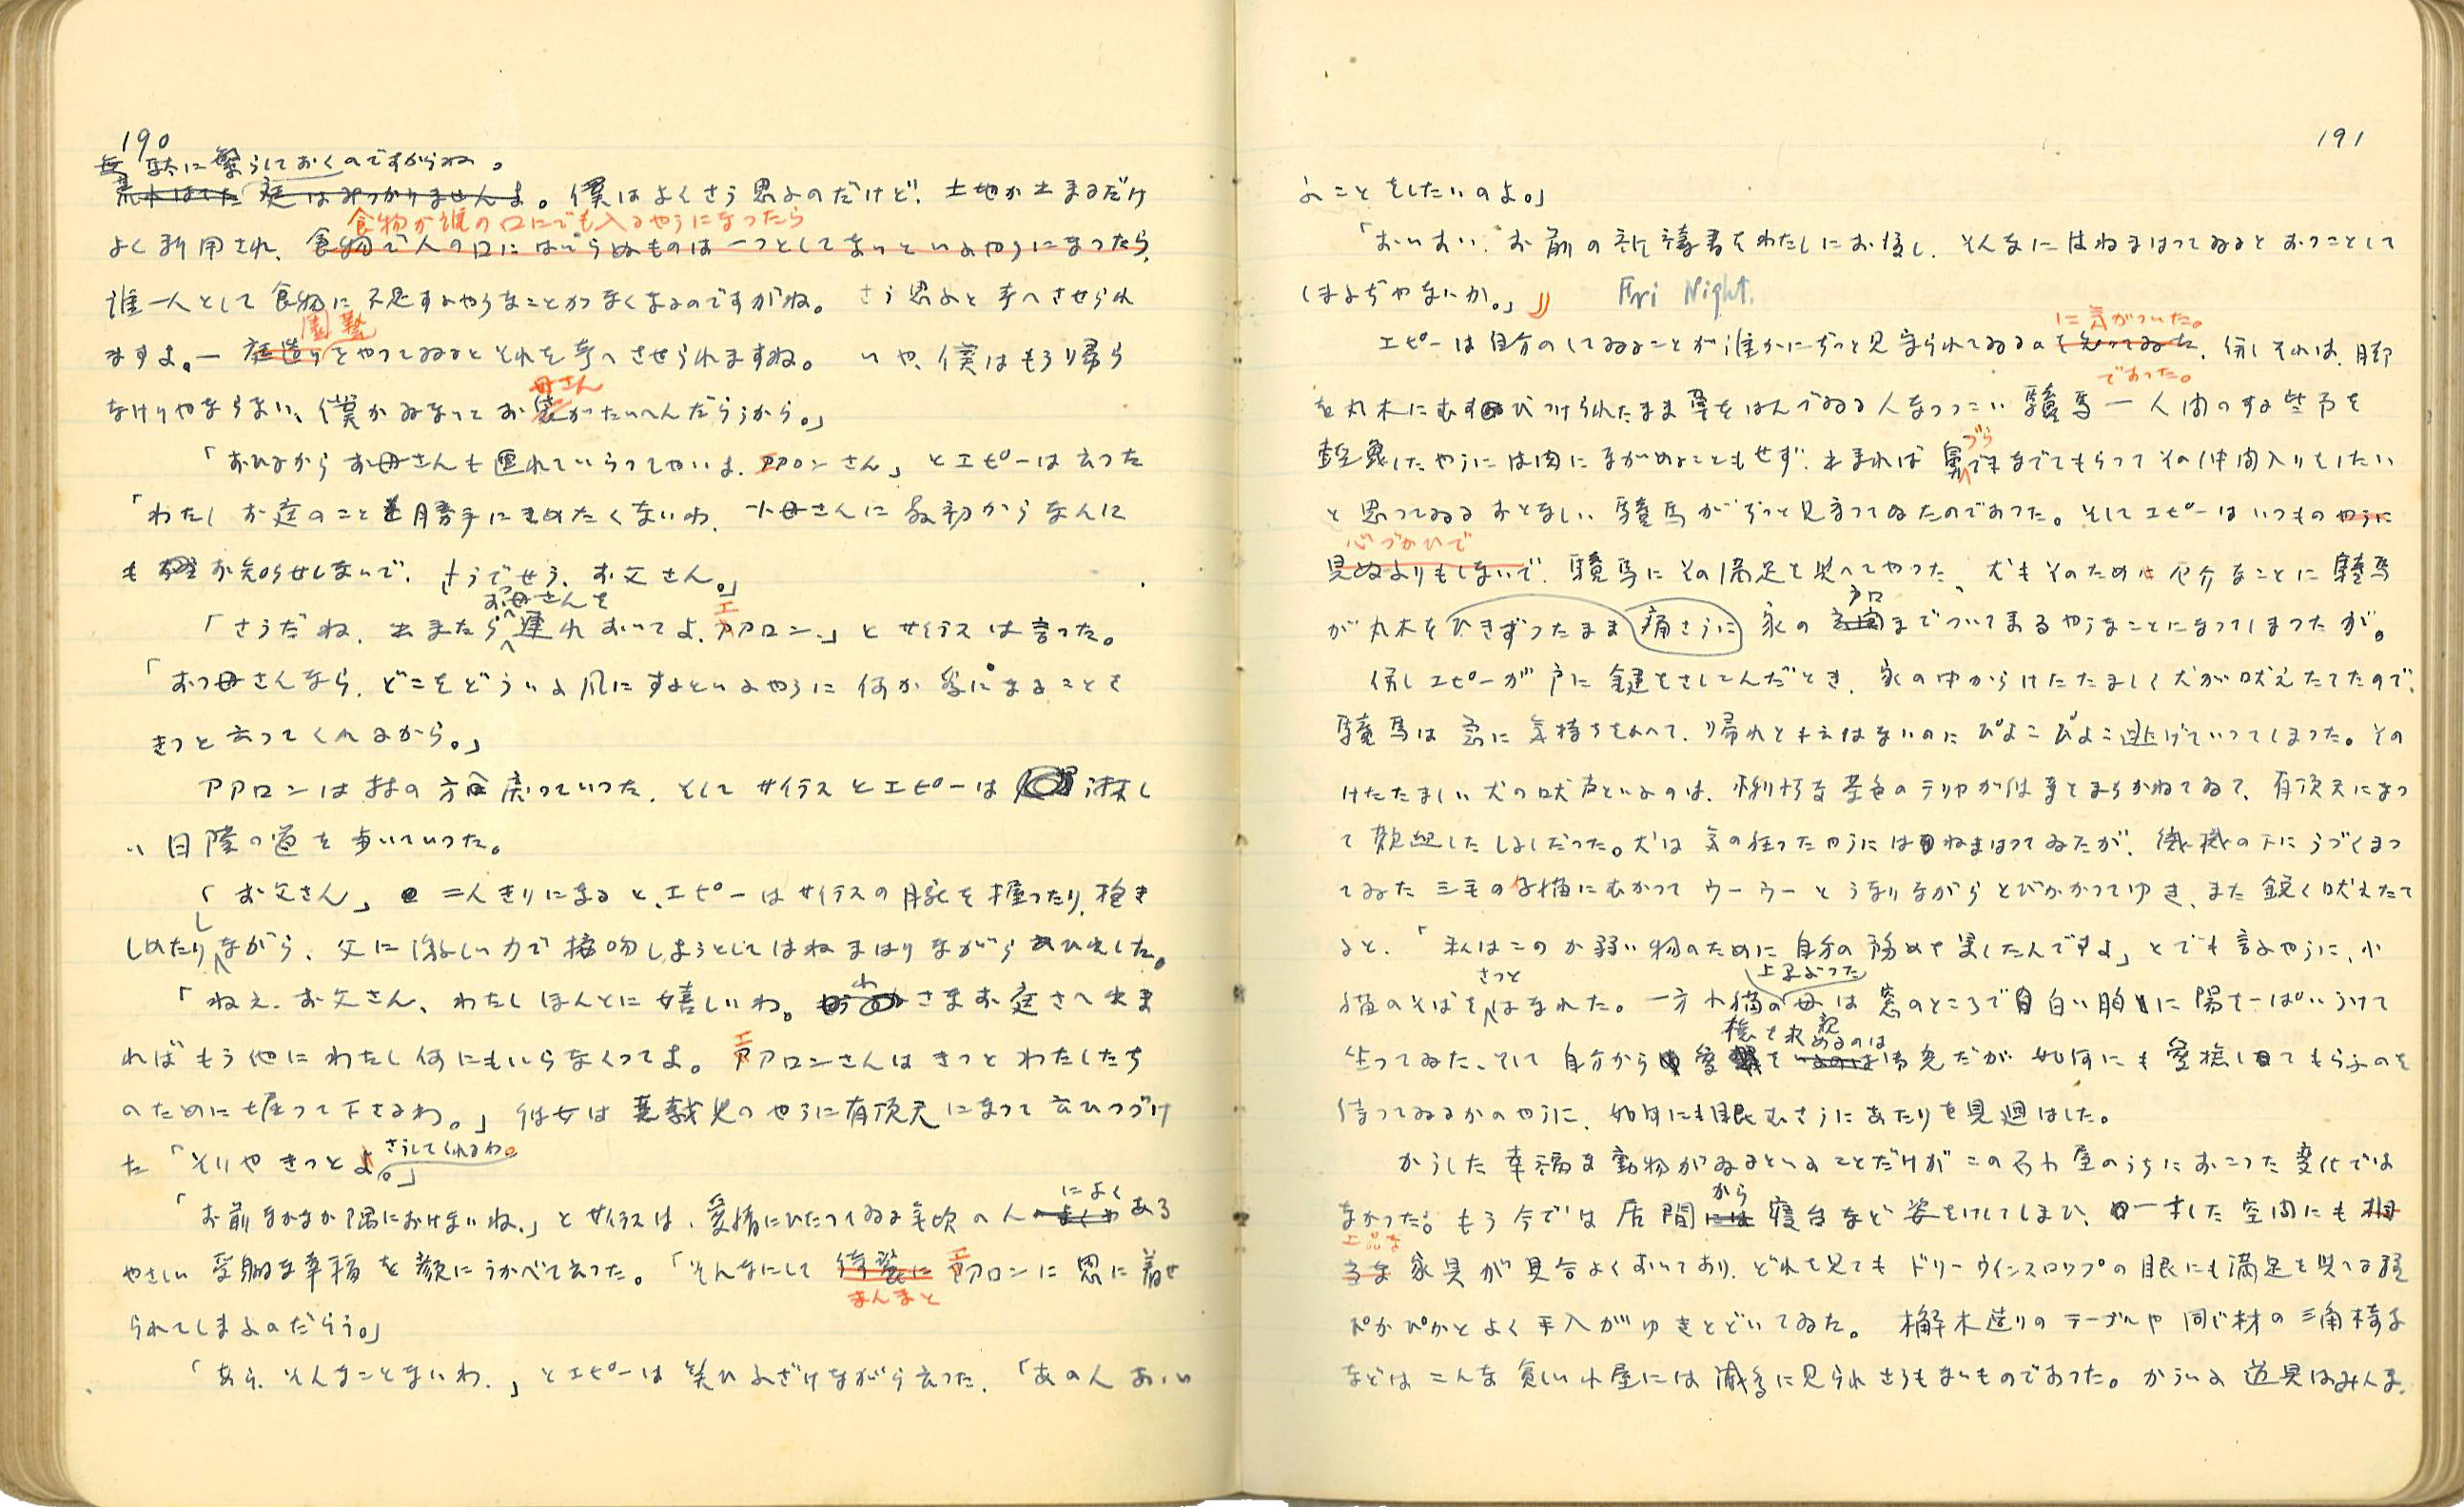 190
無駄に繁らしておくのですがらね。
荒れはてた庭はみつかりませんよ。僕はよくさう思ふのだけど、土地が出来るだけ
食物が誰の口にでも入るやうになつたら
よく利用され、食物で人の口にはいらぬものは一つとしてないといふやうになつたら、
誰一人として食物に不足するやうなことがなくなるのですがね。さう思ふと考へさせられ
園藝
ますよ。— 庭造りをやつてゐるとそれを考へさせられますね。いや、僕はもう帰ら
母さん
なけりやならない、僕がゐなつてお袋がたいへんだらうから。」
「おひるからお母さんも連れていらつしやいよ、アアロンさん」とエピーは云つた
「わたしお庭のこと勝手にきめたくないわ、小母さんに最初からなんに
もお知らせしないで、さうでせう、お父さん。」
お母さんを
「さうだね、出来たら連れおいでよ、エアロン、」とサイラスは言つた。
「おつ母さんなら、どこをどういふ風にするといふやうに何か客になることを
きつと云つてくれるから。」
アアロンは村の方へ戻つていつた、そしてサイラスとエピーは淋し
い日陰の道を歩いていつた。
「お父さん」二人きりになると、エピーはサイラスの腕を握つたり、抱き
しめたりしながら、父に激しい力で接吻しようとしてはねまはりながら云ひ出した。
「ねえ、お父さん、わたしほんとに嬉しいわ。さまお庭さへ出来
ればもう他にわたし何にもいらなくつてよ。エアロンさんはきつとわたしたち
のために堀つて下さるわ。」彼女は悪戯児のやうに有頂天になつて云ひつづけ
さうしてくれるわ。
た「そりやきつとよ。」
によく
「お前なかなか隅におけないね、」とサイラスは、愛情にひたつてゐる年吹の人ある
やさしい受動な幸福を顔にうかべて云つた。「そんなにして綺麗にエアロンに恩に着せ
まんまと
られてしまふのだらう。」
「あら、そんなことないわ、」とエピーは笑ひふざけながら云つた、「あの人あゝい
191
ふことをしたいのよ。」
「おいおい、お前の祈祷書をわたしにお借し、そんなにはねまはつてゐるとおつことして
しまふぢやないか。」 Fri Night.
に気がついた。
エピーは自分のしてゐることが誰かにぢつと見守られてゐるのを知つてゐた、併しそれは、脚
であつた。
を丸木にむすびつけられたまま草をはんでゐる人なつつこい驢馬—人間のする些事を
づら
軽蔑したやうには肉にながめることもせず、出来れば鼻でもなでてもらつてその仲間入りをしたい
と思つてゐるおとなしい驢馬がぢつと見まつてゐたのであつた。そしてエピーはいつものやうに
心づかひで
見ぬふりもしないで、驢馬にその満足を与へてやつた、尤もそのため厄介なことに驢馬
戸口
が丸木をひきずつたまま痛さうに家の玄関までついてまゐるやうなことになつてしまつたが。
併しエピーが戸に鍵をさしこんだとき、家の中からけたたましく犬が吠えたてたので、
驢馬は急に気持ちをかへて、帰れとも云はないのにぴよこぴよこ逃げていつてしまつた。その
けたたましい犬の吠声といふのは、悧巧な茶色のテリヤが得事とまちかねてゐて、有頂天になつ
て歓迎したしるしだつた。犬は気の狂つたやうにはねまはつてゐたが、織機の下にうづくまつ
てゐた三毛の子猫にむかつてウーウーとうなりながらとびかかつてゆき、また鋭く吠えたて
ると、「私はこのか弱い物のために自分の務めを果したんですよ」とでも言ふやうに、小
さつと
猫のそばをはなれた。一方小猫の母は窓のところで白い胸に陽を一ぱいうけて
坐つてゐた、そして自分から愛を求めるのは御免だが如何にも愛撫してもらふのを
待つてゐるかのやうに、如何にも眠むさうにあたりを見廻はした。
かうした幸福な動物がゐるといふことだけがこの石小屋のうちにおこつた変化では
から
なかつた。もう今では居間には寝台など姿をけしてしまひ、一寸した空間にも
上品な
家具が具合よくおいてあり、どれを見てもドリーウインスロツプの眼にも満足を与へる程
ぴかぴかとよく手入がゆきとどいてゐた。樫木造りのテーブルや同じ材の三角椅子
などはこんな貧しい小屋には滅多に見られさうもないものであつた。かういふ道具はみんな、